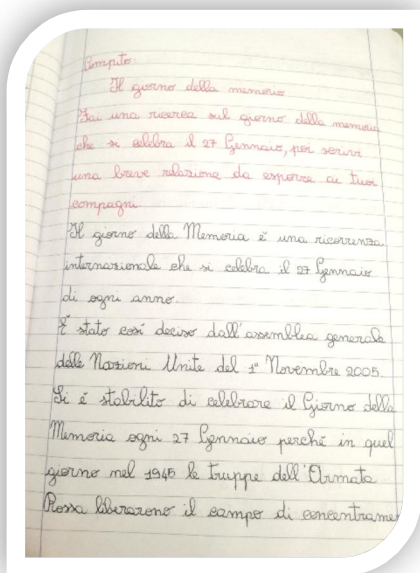 Compito:
Il giorno della memoria
Fai una ricerca sul giorno della memoria
che si celebra il 27 Gennaio, poi scrivi
una breve relazione da esporre ai tuoi
compagni.
Il giorno della Memoria é una ricorrenza
internazionale che si celebra il 27 Gennaio
di ogni anno.
É stato cosí deciso dall'assemblea generale
delle Nazioni Unite del 1° Novembre 2005.
Si é stabilito di celebrare il Giorno della
Memoria ogni 27 Gennaio perché in quel
giorno nel 1945 le truppe dell'Armata
Rossa liberarono il campo di concentrame